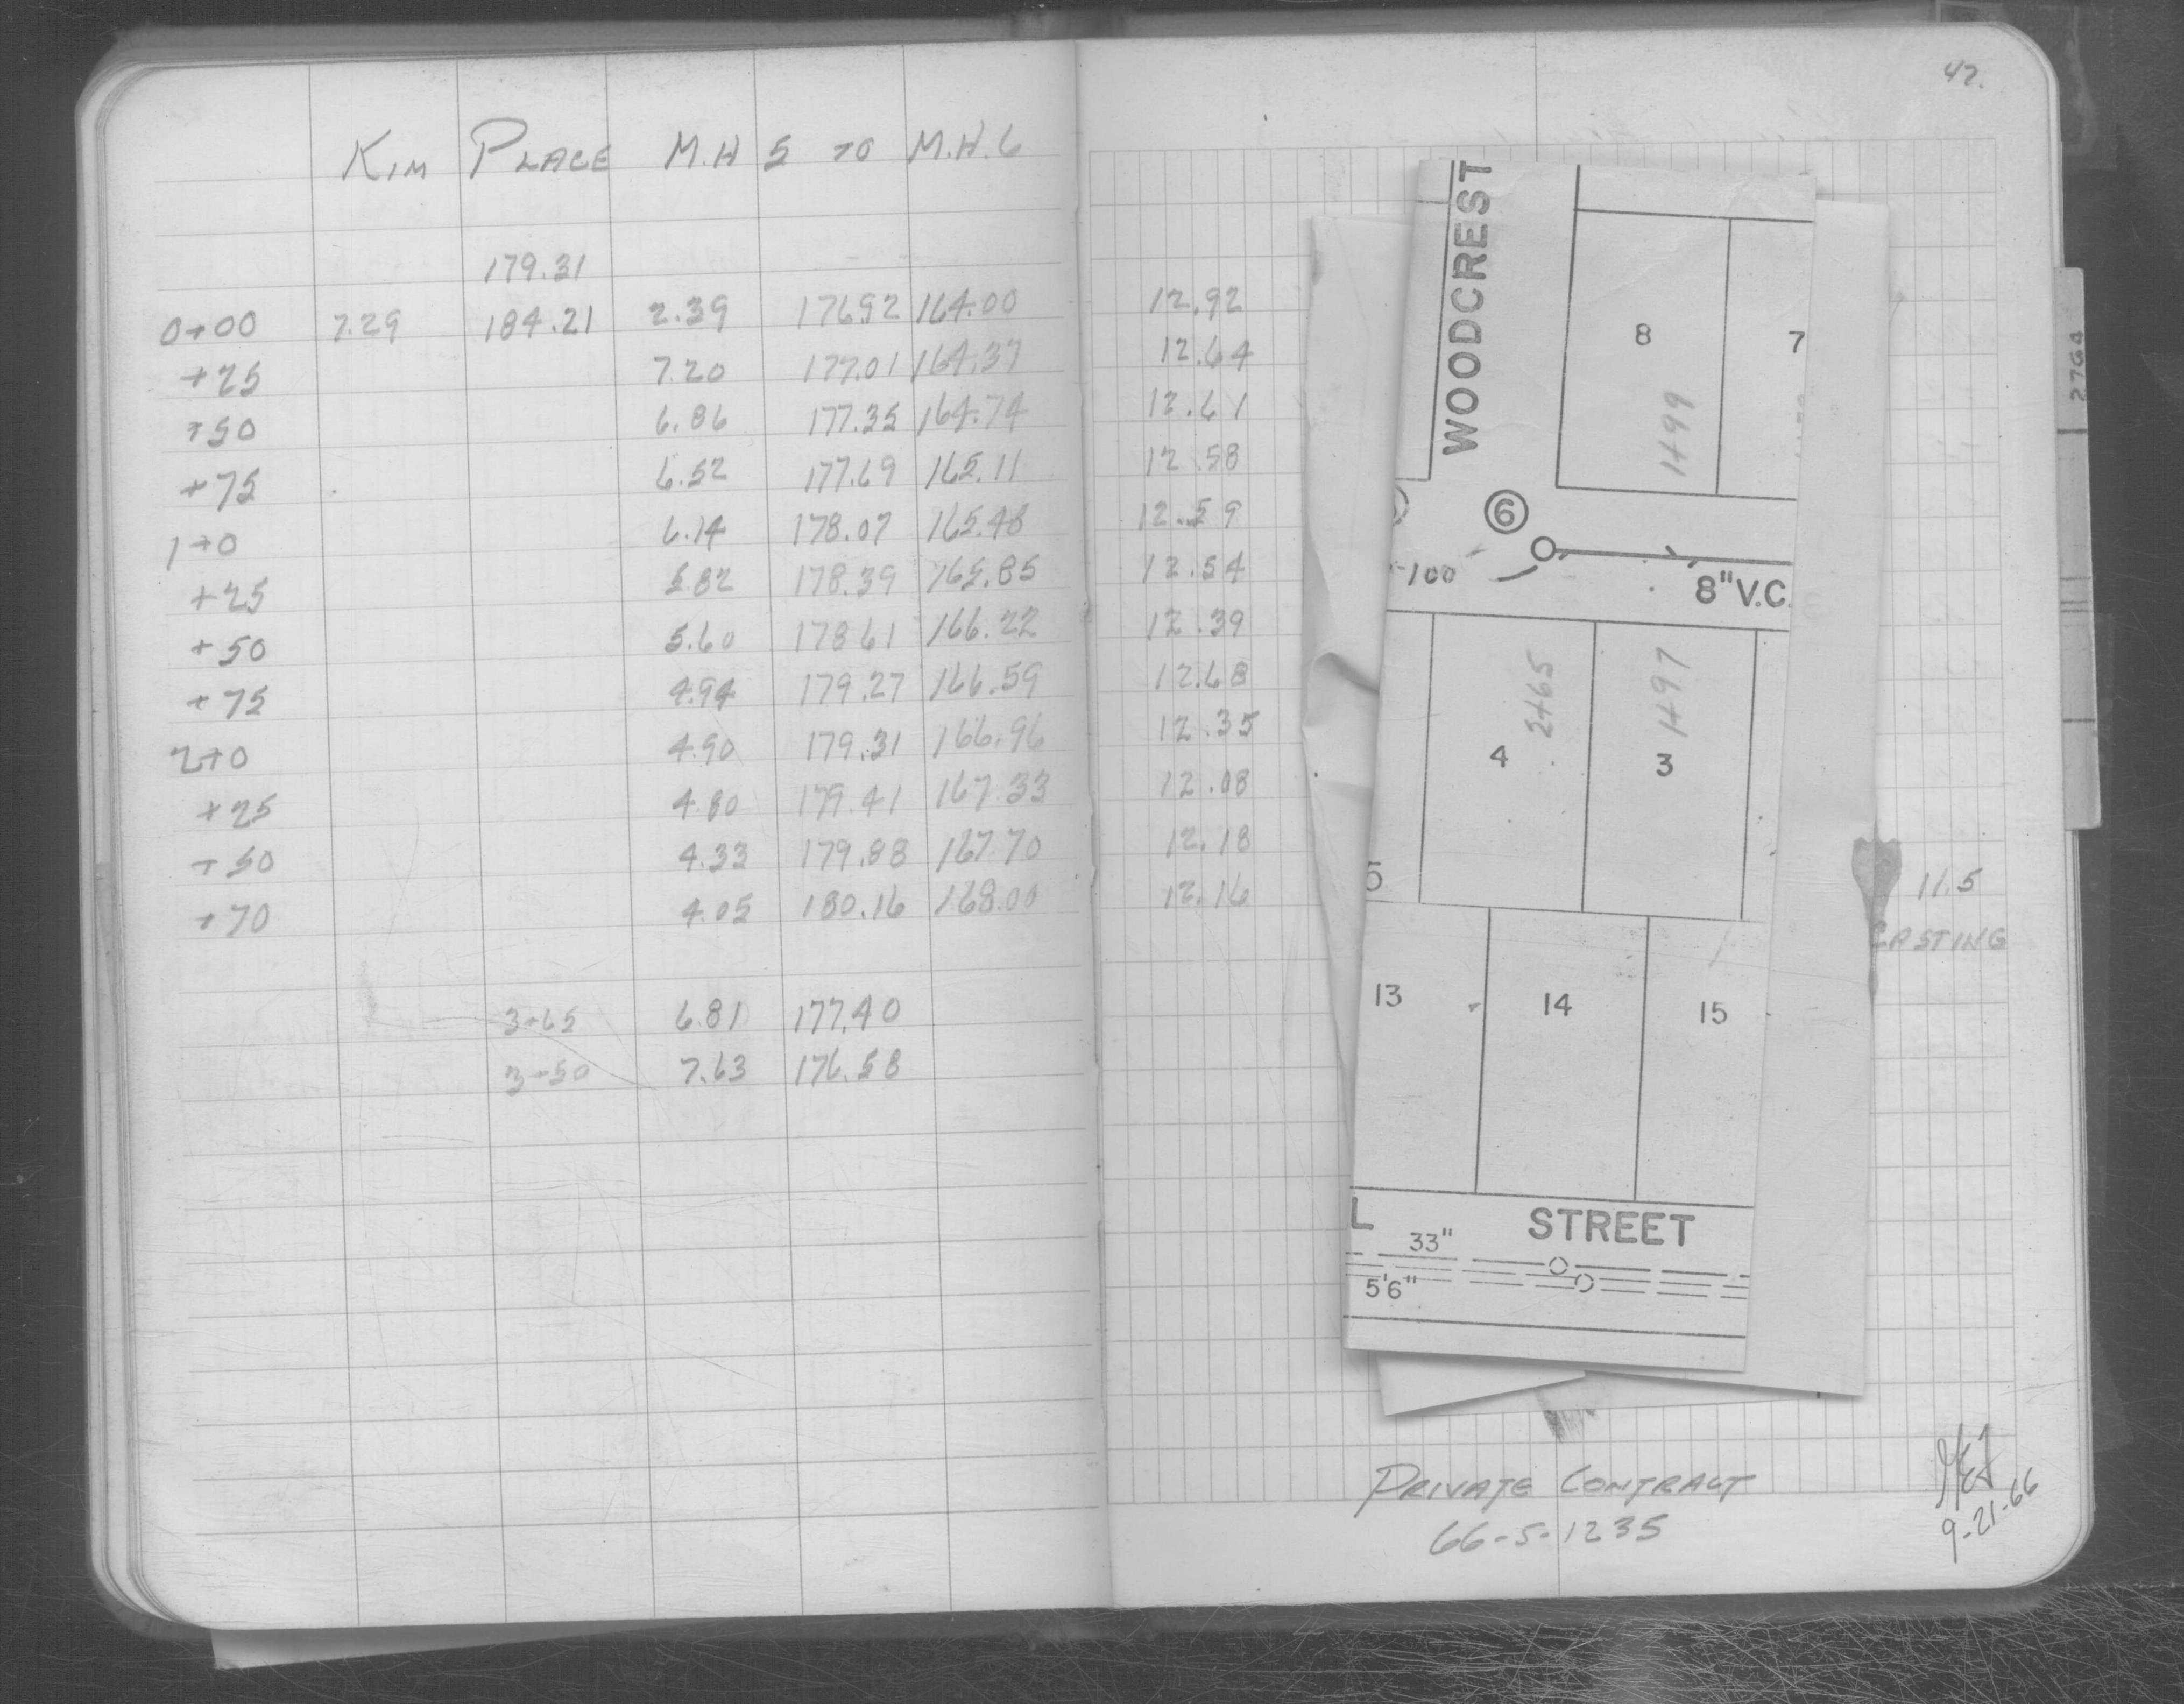 KIM PLACE M.H 5 TO M.H. 6
179.31
0+00 7.29 184.21 2.39 176.92 164.00 12.92
+25 7.20 177.01 164.37 12.64
+50 6.86 177.35 164.74 12.61
+75 6.52 177.69 165.11 12.58
1+0 6.14 178.07 165.48 12.59
+25 5.82 178.39 165.85 12.54
+50 5.60 178.61 166.22 12.39
+75 4.94 179.27 166.59 12.68
2+0 4.90 179.31 166.96 12.35
+25 4.80 179.41 167.33 12.08
+50 4.33 179.88 167.70 12.18
+70 4.05 180.16 168.00 12.16
3+65 6.81 177.40
3+50 7.63 176.58
47.
WOODCREST
8
7
1499
6
100
8" V.C.
2465
1497
4
3
5
13
14
15
L STREET
33"
5'6"
11.5
CASTING
PRIVATE CONTRACT
66-S-1235
9-21-66
2764